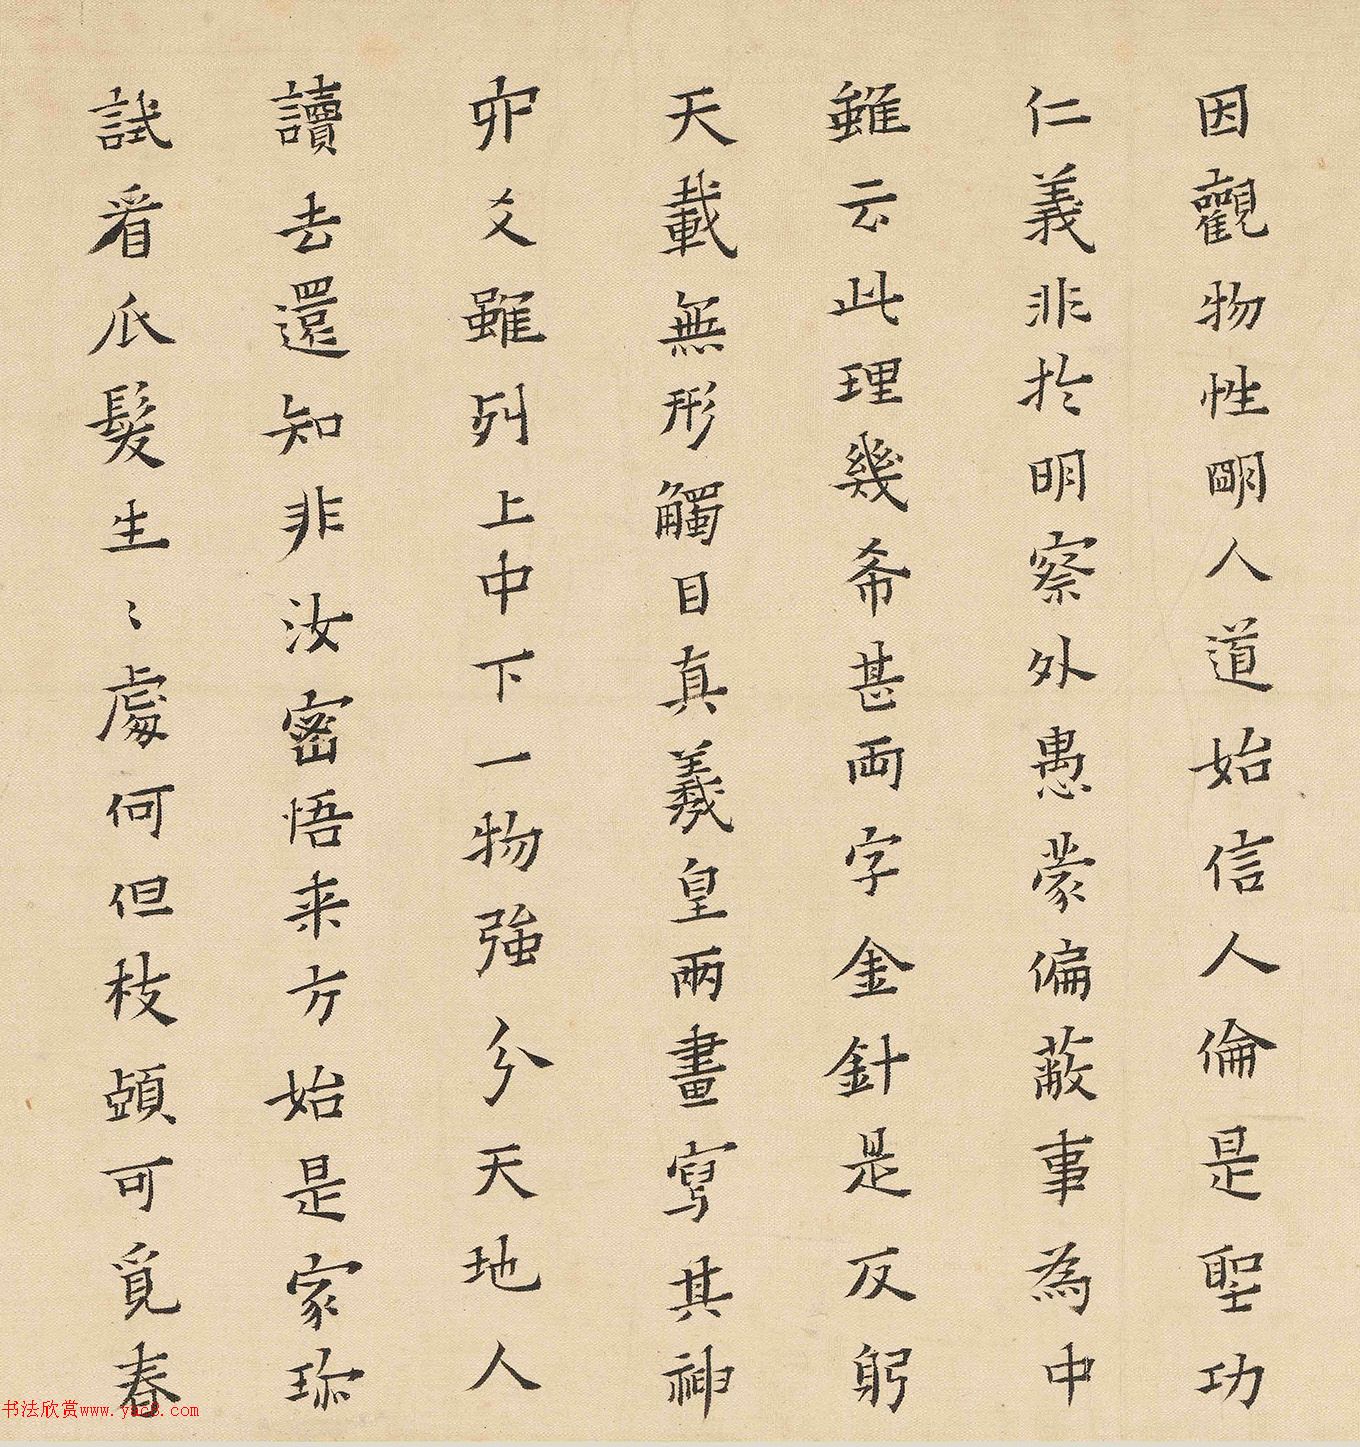 因觀物性明人道始信人倫是聖功
仁義非扵明察外愚蒙偏蔽事為中
雖云此理幾希甚兩字金針是反躬
天載無形觸目真羲皇兩畫寫其神
六爻雖列上中下一物強分天地人
讀去還知非汝密悟来方始是家珎
試看爪髮生〻處何但枝頭可覓春
书法欣赏www.yac8.com